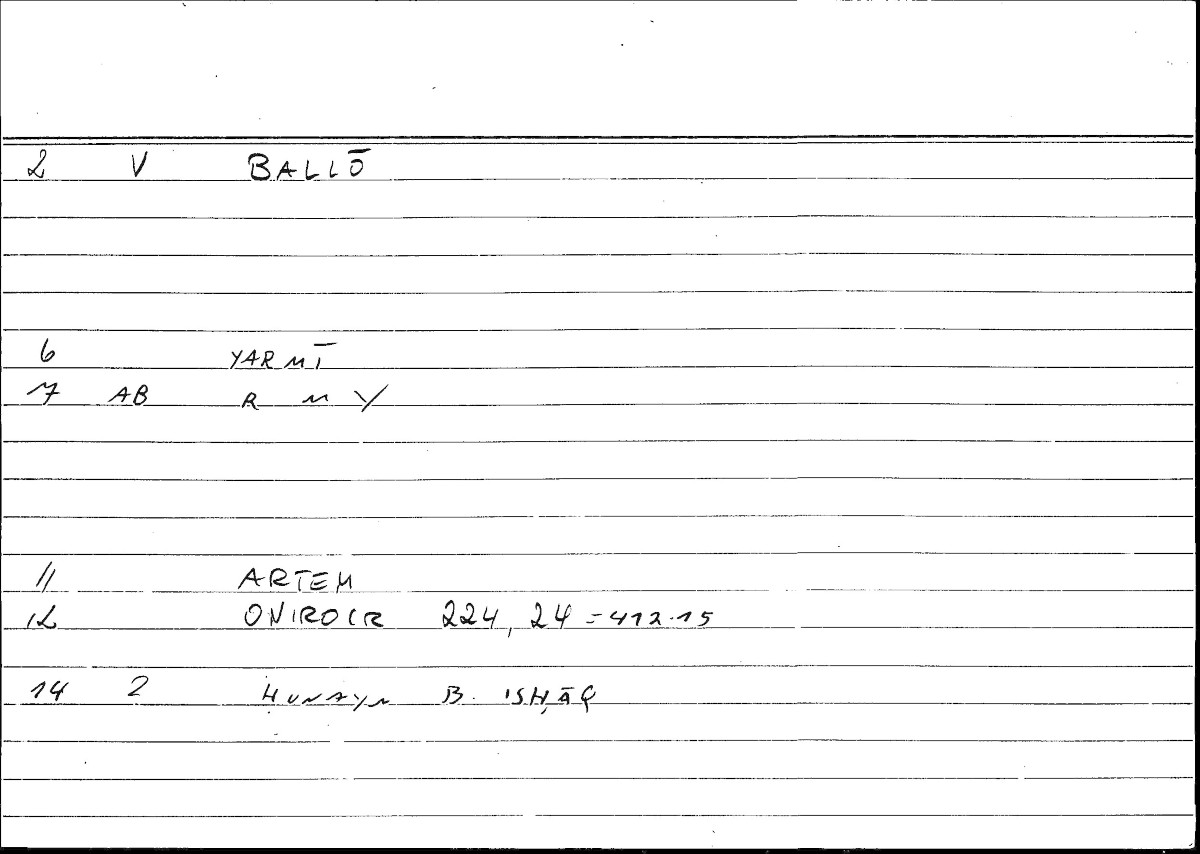 2 V BALLŌ
6 YARMĪ
7 AB R M Y
11 ARTEM
12 ONIROCR 224, 24 = 412.15
14 2 HUNAYN B. ISḤĀQ